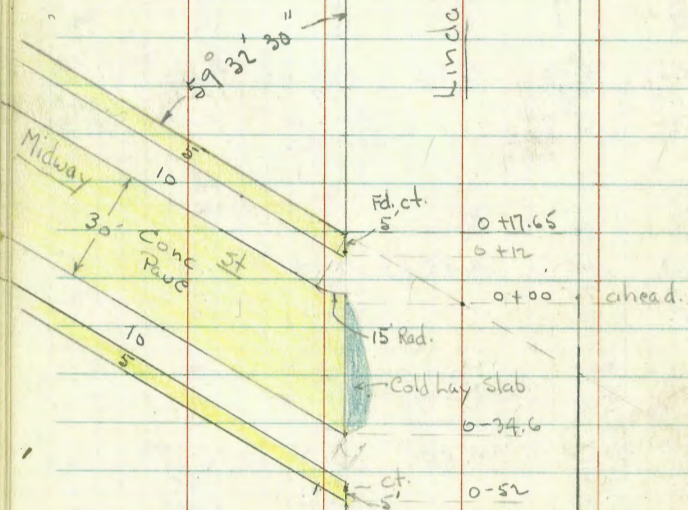 59° 32' 30"
Linda
5
Midway
10
30'
Conc
Pave
St
Fd. ct.
5'
0+17.65
0+12
0+00
ahead.
15' Rad.
Cold Lay Slab
10
5
0-34.6
ct.
5'
0-52